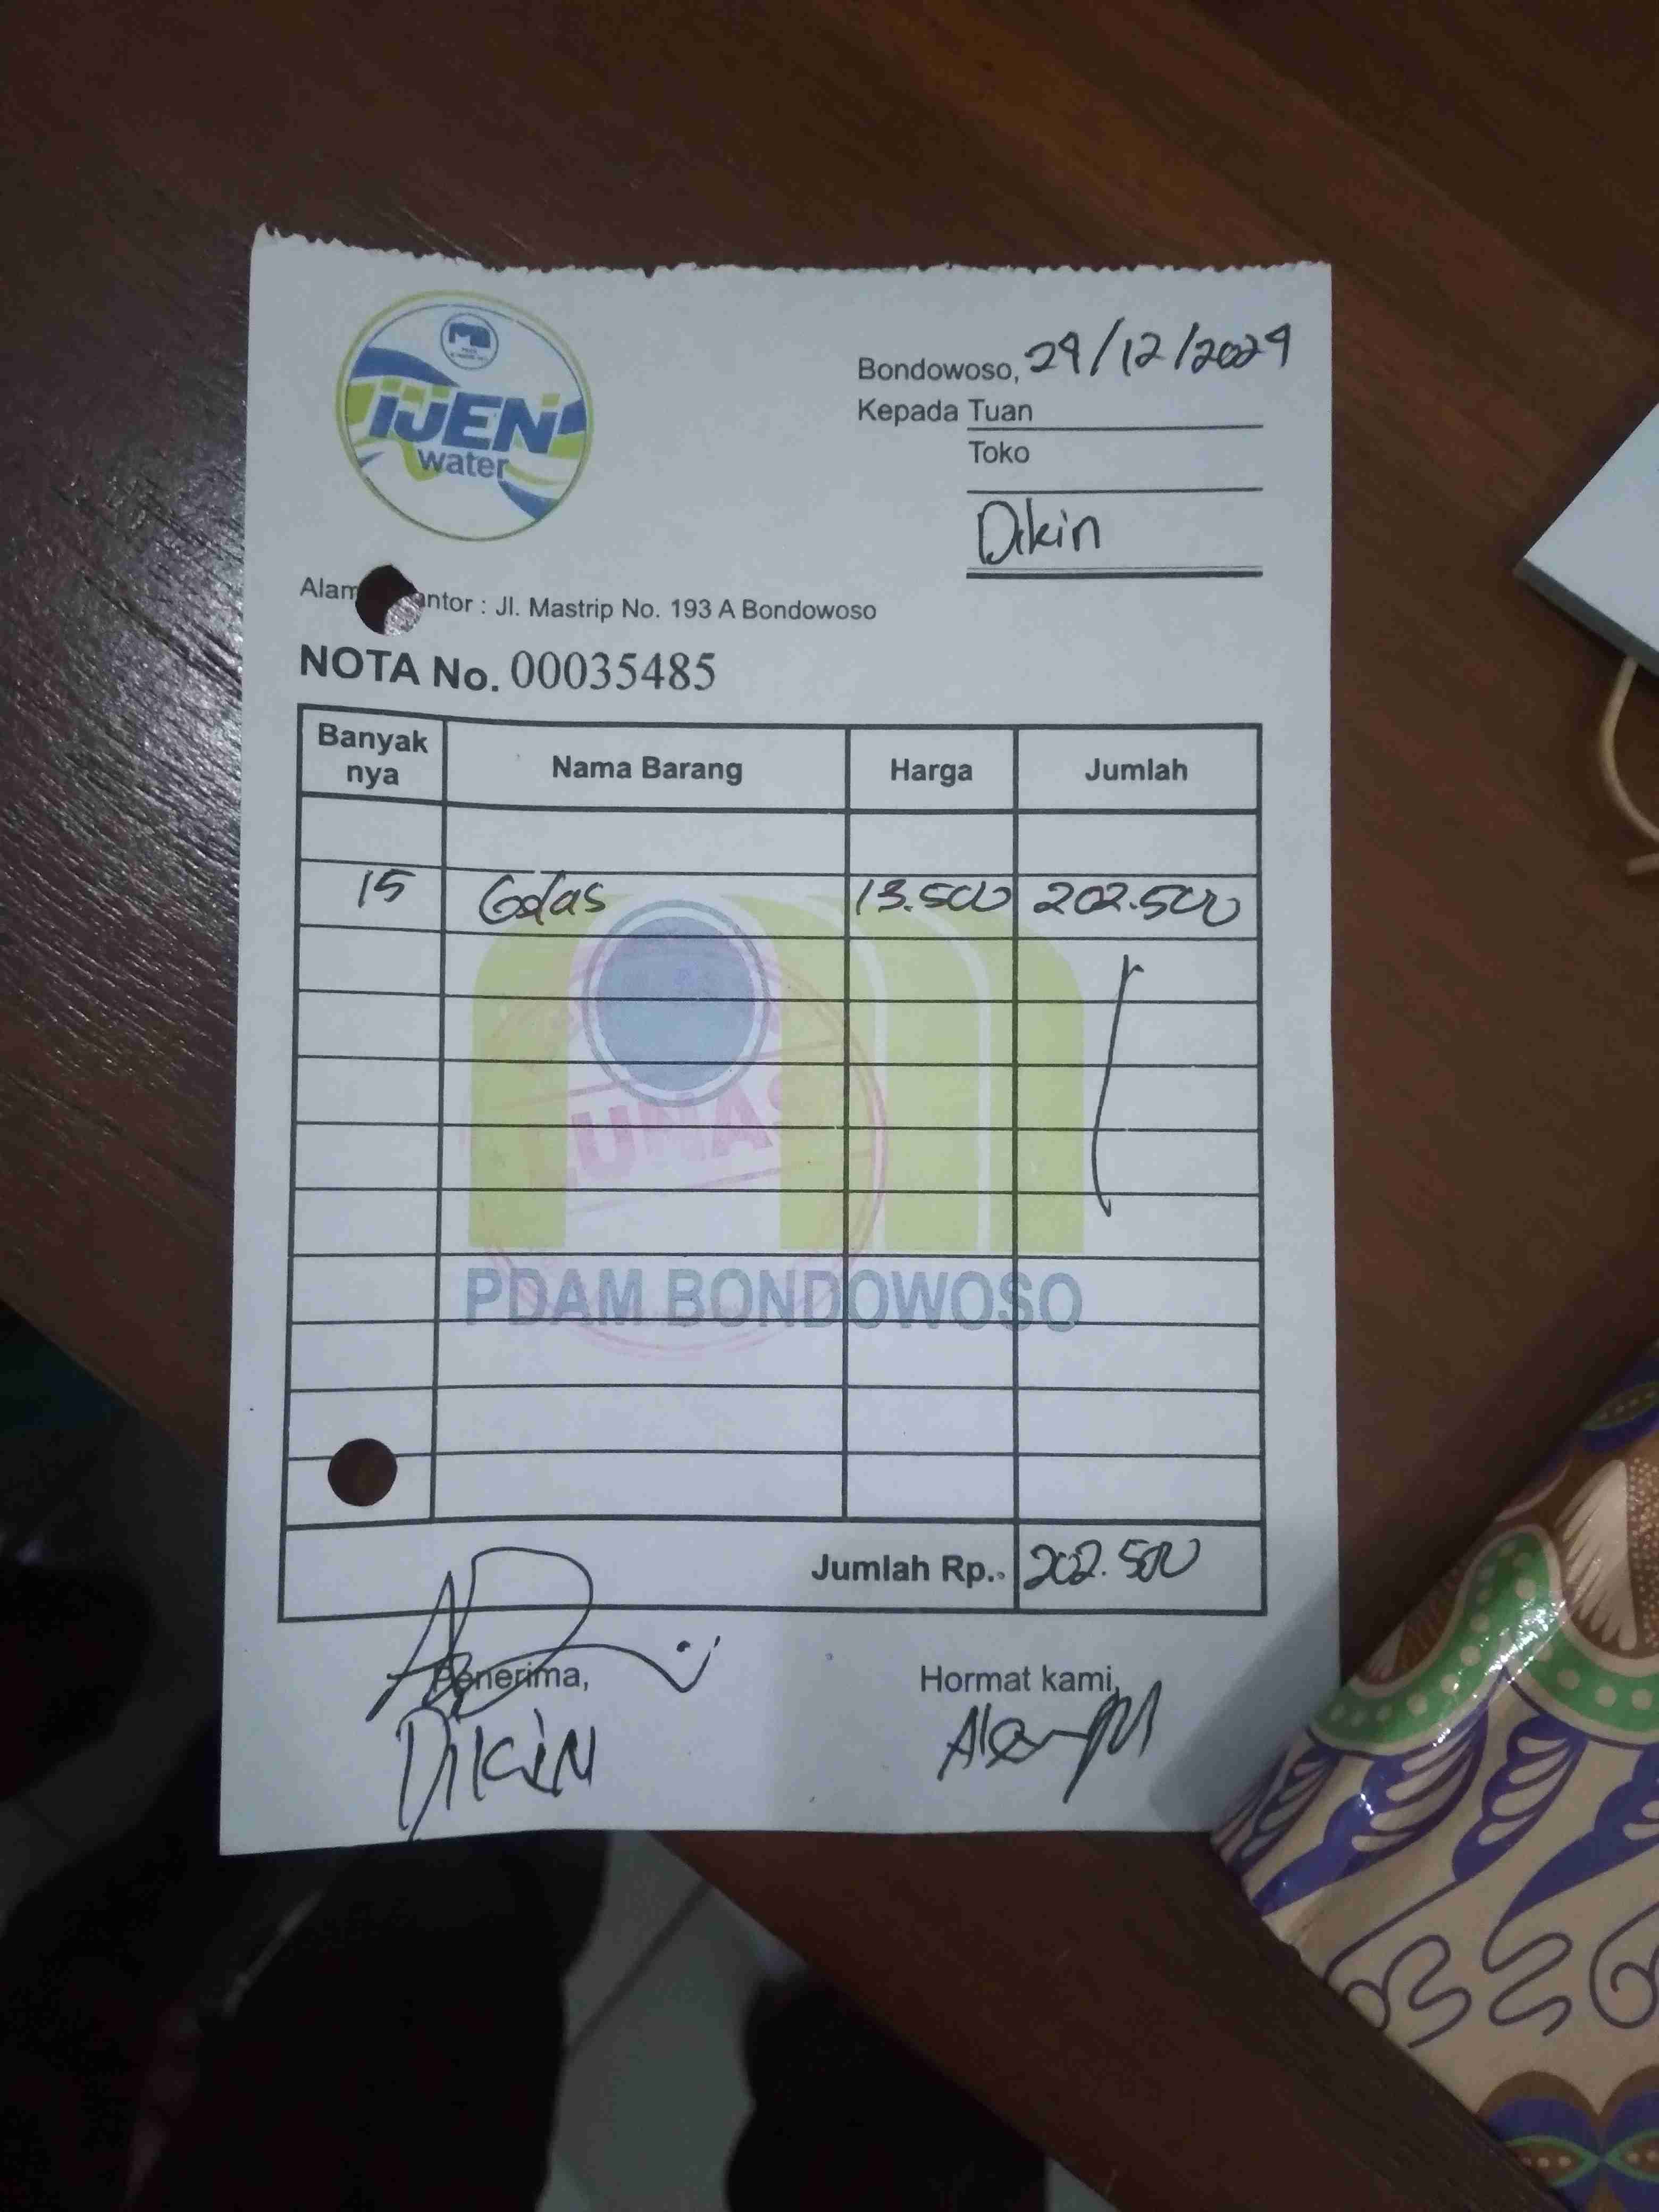 IJEN
water
Bondowoso, 24/12/2024
Kepada Tuan
Toko
Dikin
Alam ntor : Jl. Mastrip No. 193 A Bondowoso
NOTA No. 00035485
Banyak nya Nama Barang Harga Jumlah
15 Gelas 13.500 202.500
LUNAS
PDAM BONDOWOSO
Jumlah Rp. 202.500
Penerima, Hormat kami,
DIKIN